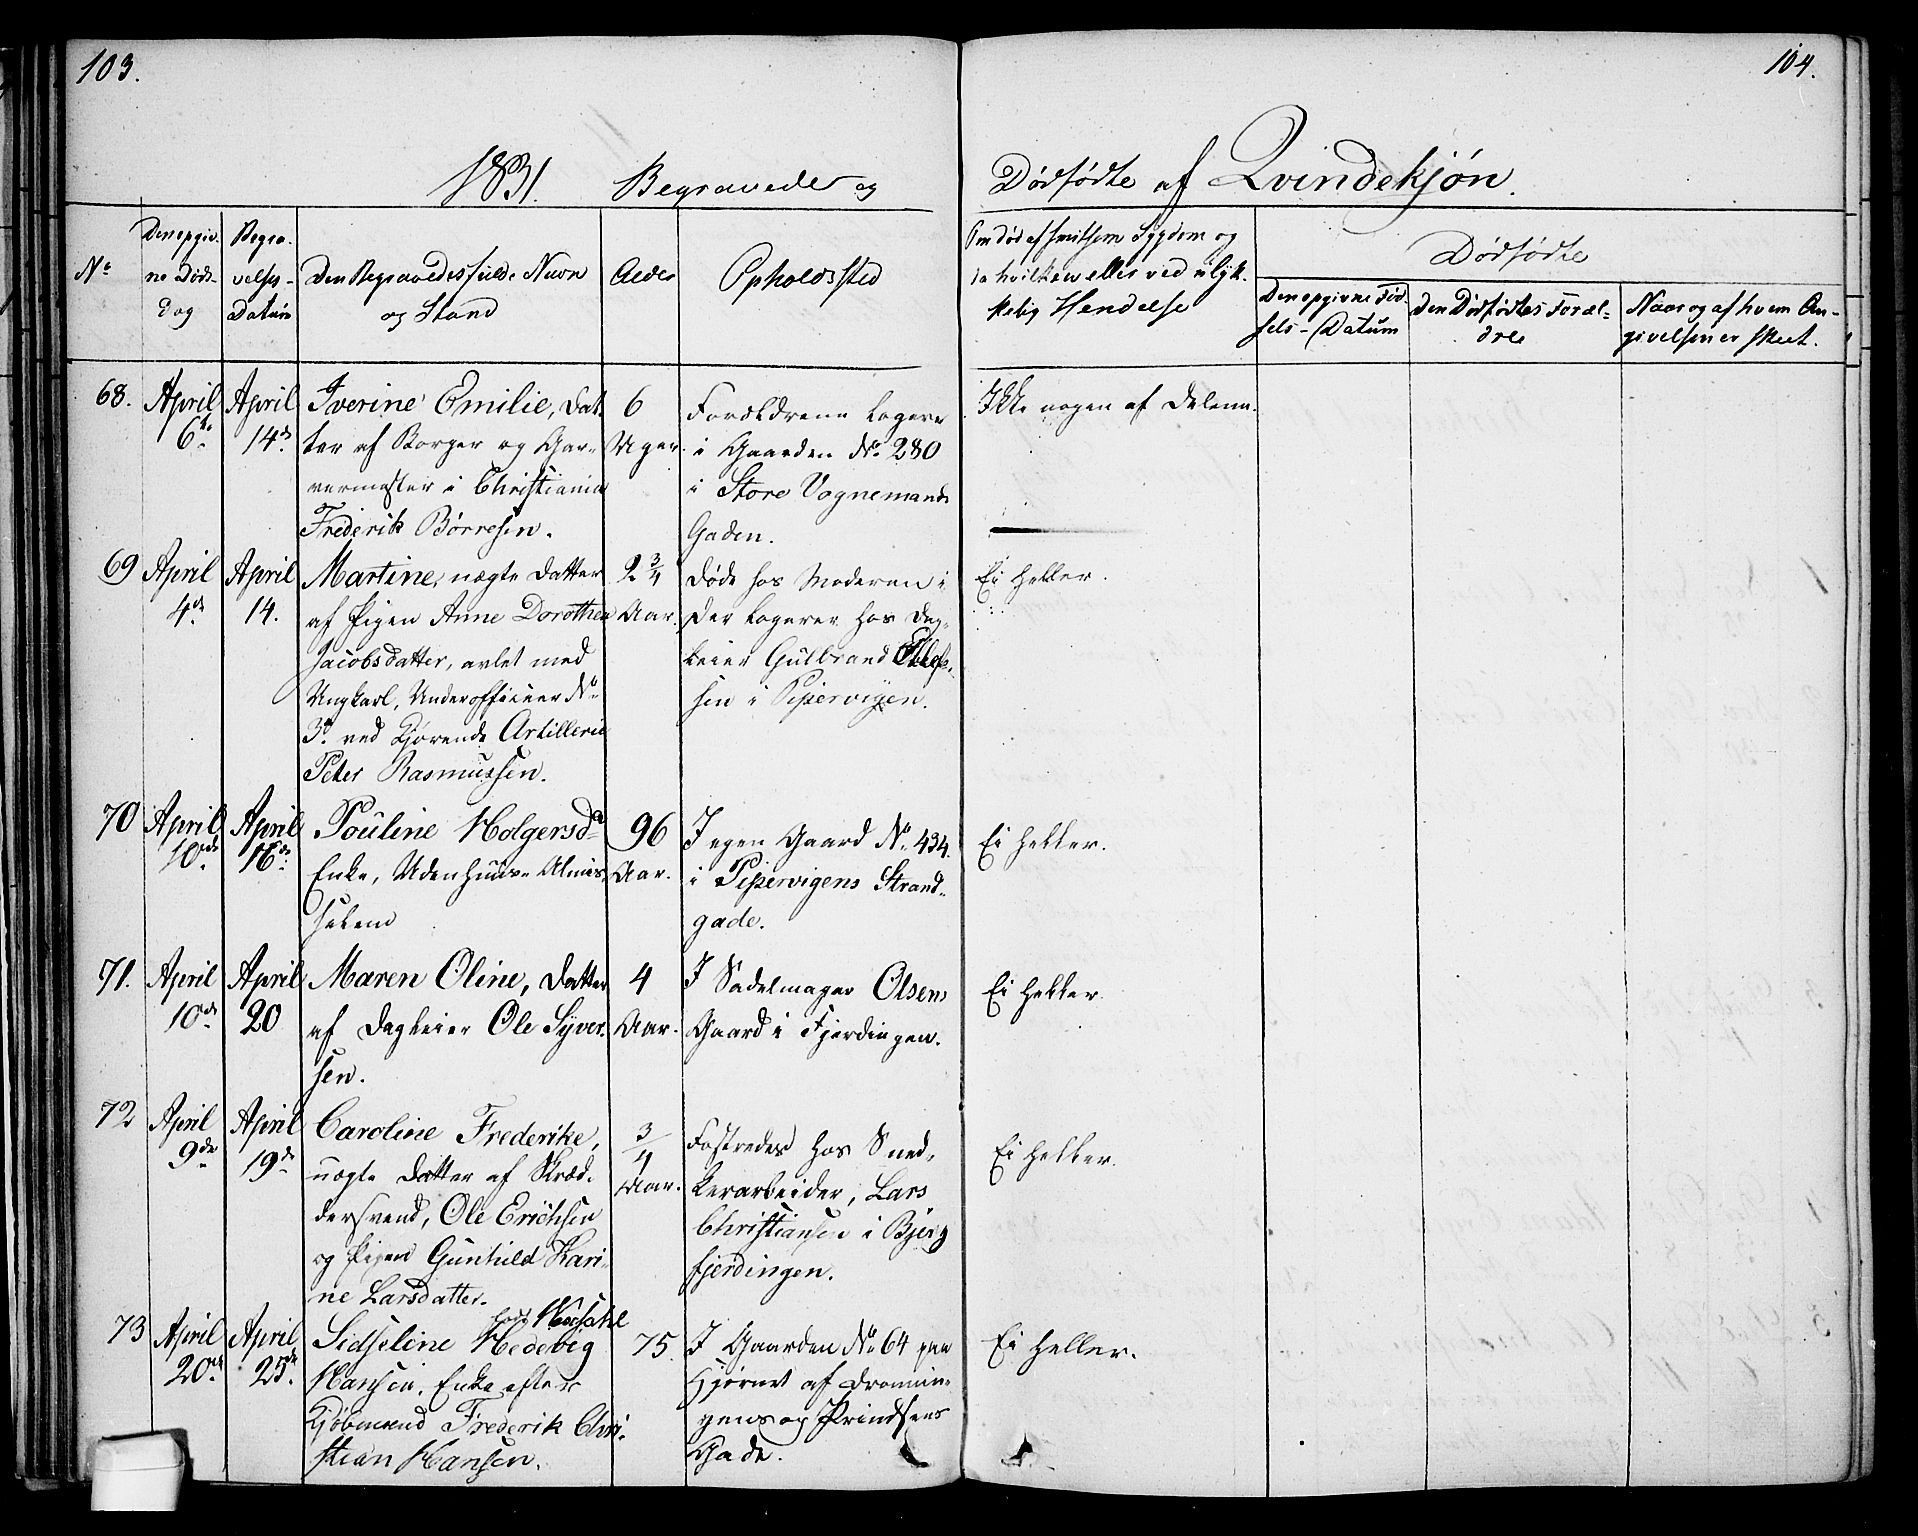 103.
104.
1831. Begravede og
Dødfødte af Qvindekjøn.
No
Den opgiv-
ne Døds-
Dag
Begra-
velses-
Datum
Den Begravedes fulde Navn
og Stand
Alder
Opholdssted
Om død af smitsom Sygdom og
da hvilken eller ved ulyk-
kelig Hendelse
Dødfødte
Den opgivne Fød-
sels-Datum
den Dødfødtes Foræl-
dre
Naar og af hvem An-
givelsen er skeet.
68.
April
6te
April
14de
Iverine Emilie, Dat-
ter af Borger og Gar-
vermester i Christiania
Frederik Børresen.
6
Uger.
Forældrene logere
i Gaarden No 280
i Store Vognemands
Gaden.
Ikke nogen af Delene.
69
April
4de
April
14.
Martine, uægte Datter
af Pigen Anne Dorothea
Jacobsdatter, avlet med
Ungkarl, Underofficeer No
3 ved kjørende Artillerie
Peter Rasmussen.
2 3/4
Aar.
Døde hos Moderen i
der logerer hos Dag-
leier Gulbrand
sen i Pipervigen.
Ei heller.
70
April
10de
April
16de
Pouline Holgersdr
Enke, Udenhuus Almis-
selem
96
Aar.
I egen Gaard No 434.
i Pipervigens Strand-
gade.
Ei heller.
71.
April
10de
April
20
Maren Oline, Datter
af Dagleier Ole Syver-
sen.
4
Aar.
I Sadelmager Olsens
Gaard i Fjerdingen.
Ei heller.
72
April
9de
April
19de
Caroline Frederike,
uægte Datter af Skræd-
dersvend, Ole Erichsen
og Pigen Gunhild Kari-
ne Larsdatter.
3/4
Aar.
Fostredes hos Sned-
kerarbeider, Lars
Christiansen i Bjerg
fjerdingen.
Ei heller.
73
April
20de
April
25de
født
Sidseline Hedevig
Hansen, Enke efter
Kjøbmand Frederik Chri-
stian Hansen.
75.
I Gaarden No 64 paa
Hjørnet af Dronnin-
gens og Prindsens
Gade.
Ei heller.